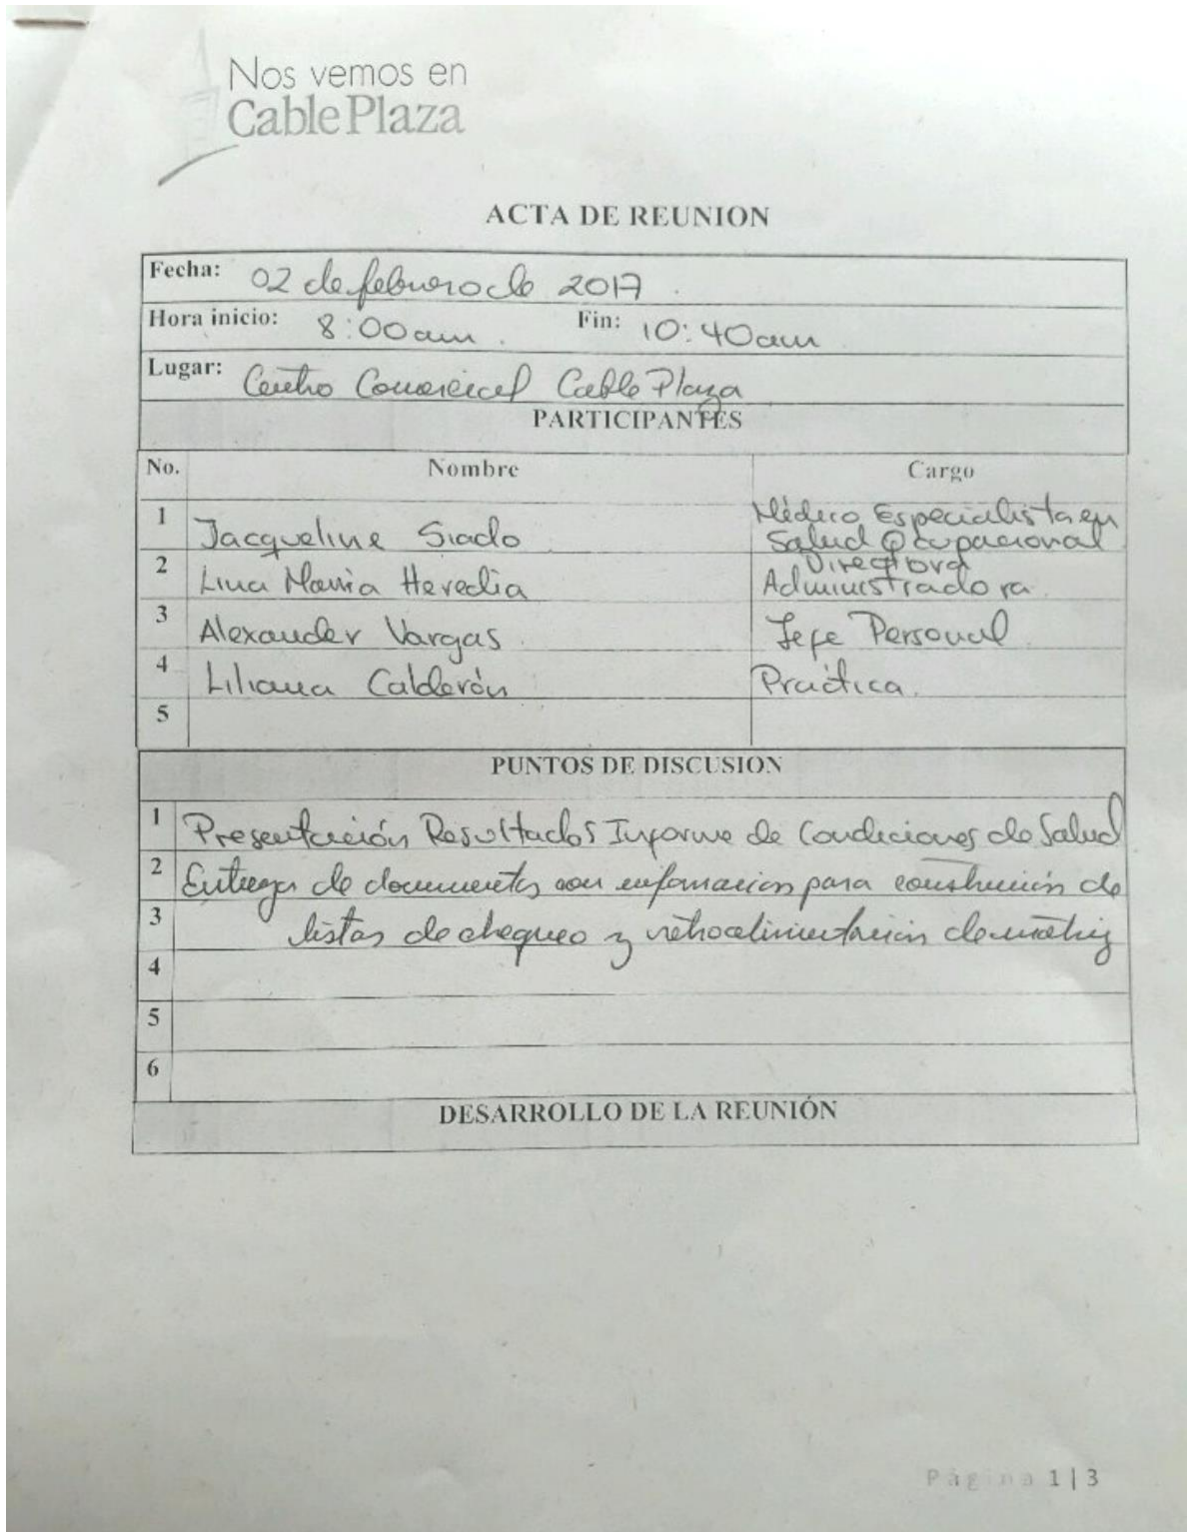 Nos vemos en
Cable Plaza
ACTA DE REUNION
Fecha: 02 de febrero de 2017.
Hora inicio: 8:00am. Fin: 10:40am
Lugar: Centro Comercial Cable Plaza
PARTICIPANTES
No. Nombre Cargo
1 Jacqueline Siado Médico Especialista en
Salud Ocupacional
2 Lina Maria Heredia Directora
Administradora.
3 Alexander Vargas. Jefe Personal.
4 Liliana Calderón Práctica.
5
PUNTOS DE DISCUSION
1 Presentación Resultados Informe de Condiciones de Salud
2 Entrega de documentos con información para construcción de
3 listas de chequeo y retroalimentación de matriz
4
5
6
DESARROLLO DE LA REUNIÓN
Página 1|3